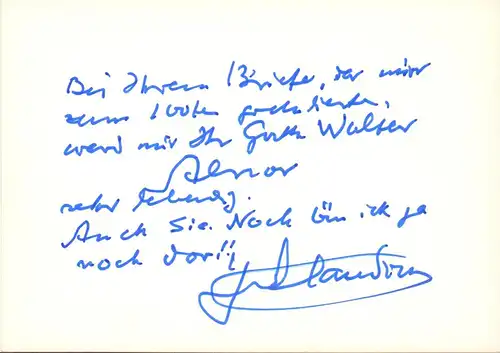 Bei Ihrem Briefe, der mir
zum 100ten gratulierte,
ward mir Ihr Gatte Walter
Alnor
sehr lebendig.
Auch Sie. Noch bin ich ja
noch da!!